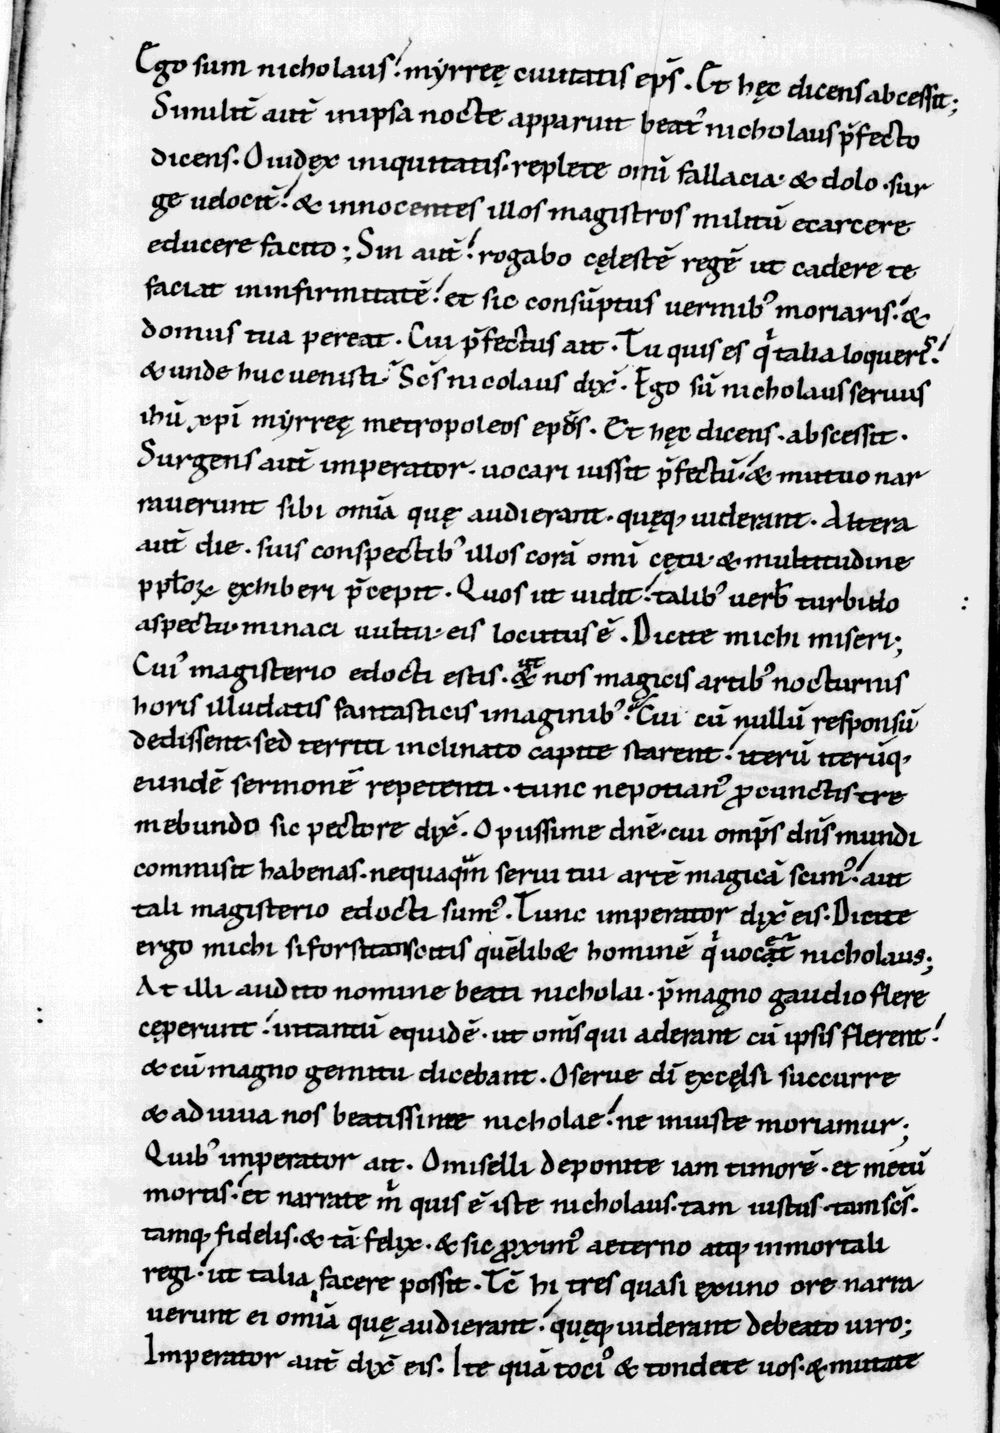 Ego sum nicholaus! myrreę ciuitatis ep̄s. Et hęc dicens abcessit;
Similit̄ aut̄ in ipsa nocte apparuit beat᾽ nicholaus p̄fecto
dicens. O iudęx iniquitatis. replete om̄i fallacia. & dolo. sur
ge uelocit̄! & innocentes illos magistros militū ecarcere
educere facito; Sin aut̄! rogabo cęlestē regē ut cadere te
faciat in infirmitatē! et sic consūptus uermib᾽ moriaris! &
domus tua pereat. Cui p̄fectus ait. Tu quis es qͥ talia loquer̄s!
& unde huc uenisti. Sc̄s nicolaus dix̄. Ego sū nicholaus seruus
ihū xpī myrreę metropoleos ep̄s. Et hęc dicens. abscessit.
Surgens aut̄ imperator. uocari iussit p̄fectū! & mutuo nar
rauerunt sibi om̄ia quę audierant. quęq; uiderant. Altera
aut̄ die. suis conspectib᾽ illos corā om̄i cętu. & multitudine
pp̄loꝝ exhiberi p̄cepit. Quos ut uidit! talib᾽ uerb̄ turbido
aspectu. minaci uultu. eis locutus ē. Dicite michi miseri;
Cui᾽ magisterio edocti estis. ut & nos magicis artib᾽ nocturnis
horis illudatis fantasticis imaginib᾽. Cui cū nullū responsū
dedissent. sed territi inclinato capite starent! iterū iterūq;
eundē sermonē repetenti. tunc nepotian᾽ ꝓ cunctis tre
mebundo sic pectore dix̄. O piissime dn̄e. cui omp̄s dn̄s mundi
commisit habenas. nequaqͣm serui tui artē magicā scim᾽! aut
tali magisterio edocti sum᾽. Tunc imperator dix̄ eis. Dicite
ergo michi si forsitan scitis quēlib& hominē qͥ uocat̄ nicholaus;
At illi audito nomine beati nicholai. p̄ magno gaudio flere
cęperunt! in tantū equidē. ut om̄s qui aderant cū ipsis flerent!
& cū magno gemitu dicebant. O serue dī excęlsi succurre
& adiuua nos beatissime nicholae! ne iniuste moriamur;
Quib᾽ imperator ait. O miselli deponite iam timorē. et metū
mortis! et narrate m̄ quis ē iste nicholaus. tam iustus. tam sc̄s.
tamq; fidelis. & tā felix. & sic ꝓxim᾽ aeterno atq; inmortali
regi! ut talia facere possit. Tc̄ hi tres quasi ęx uno ore narra
uerunt ei om̄ia quę audierant! quęq; uiderant de beato uiro;
Imperator aut̄ dix̄ eis. Ite quā toci᾽ & tondete uos. & mutate